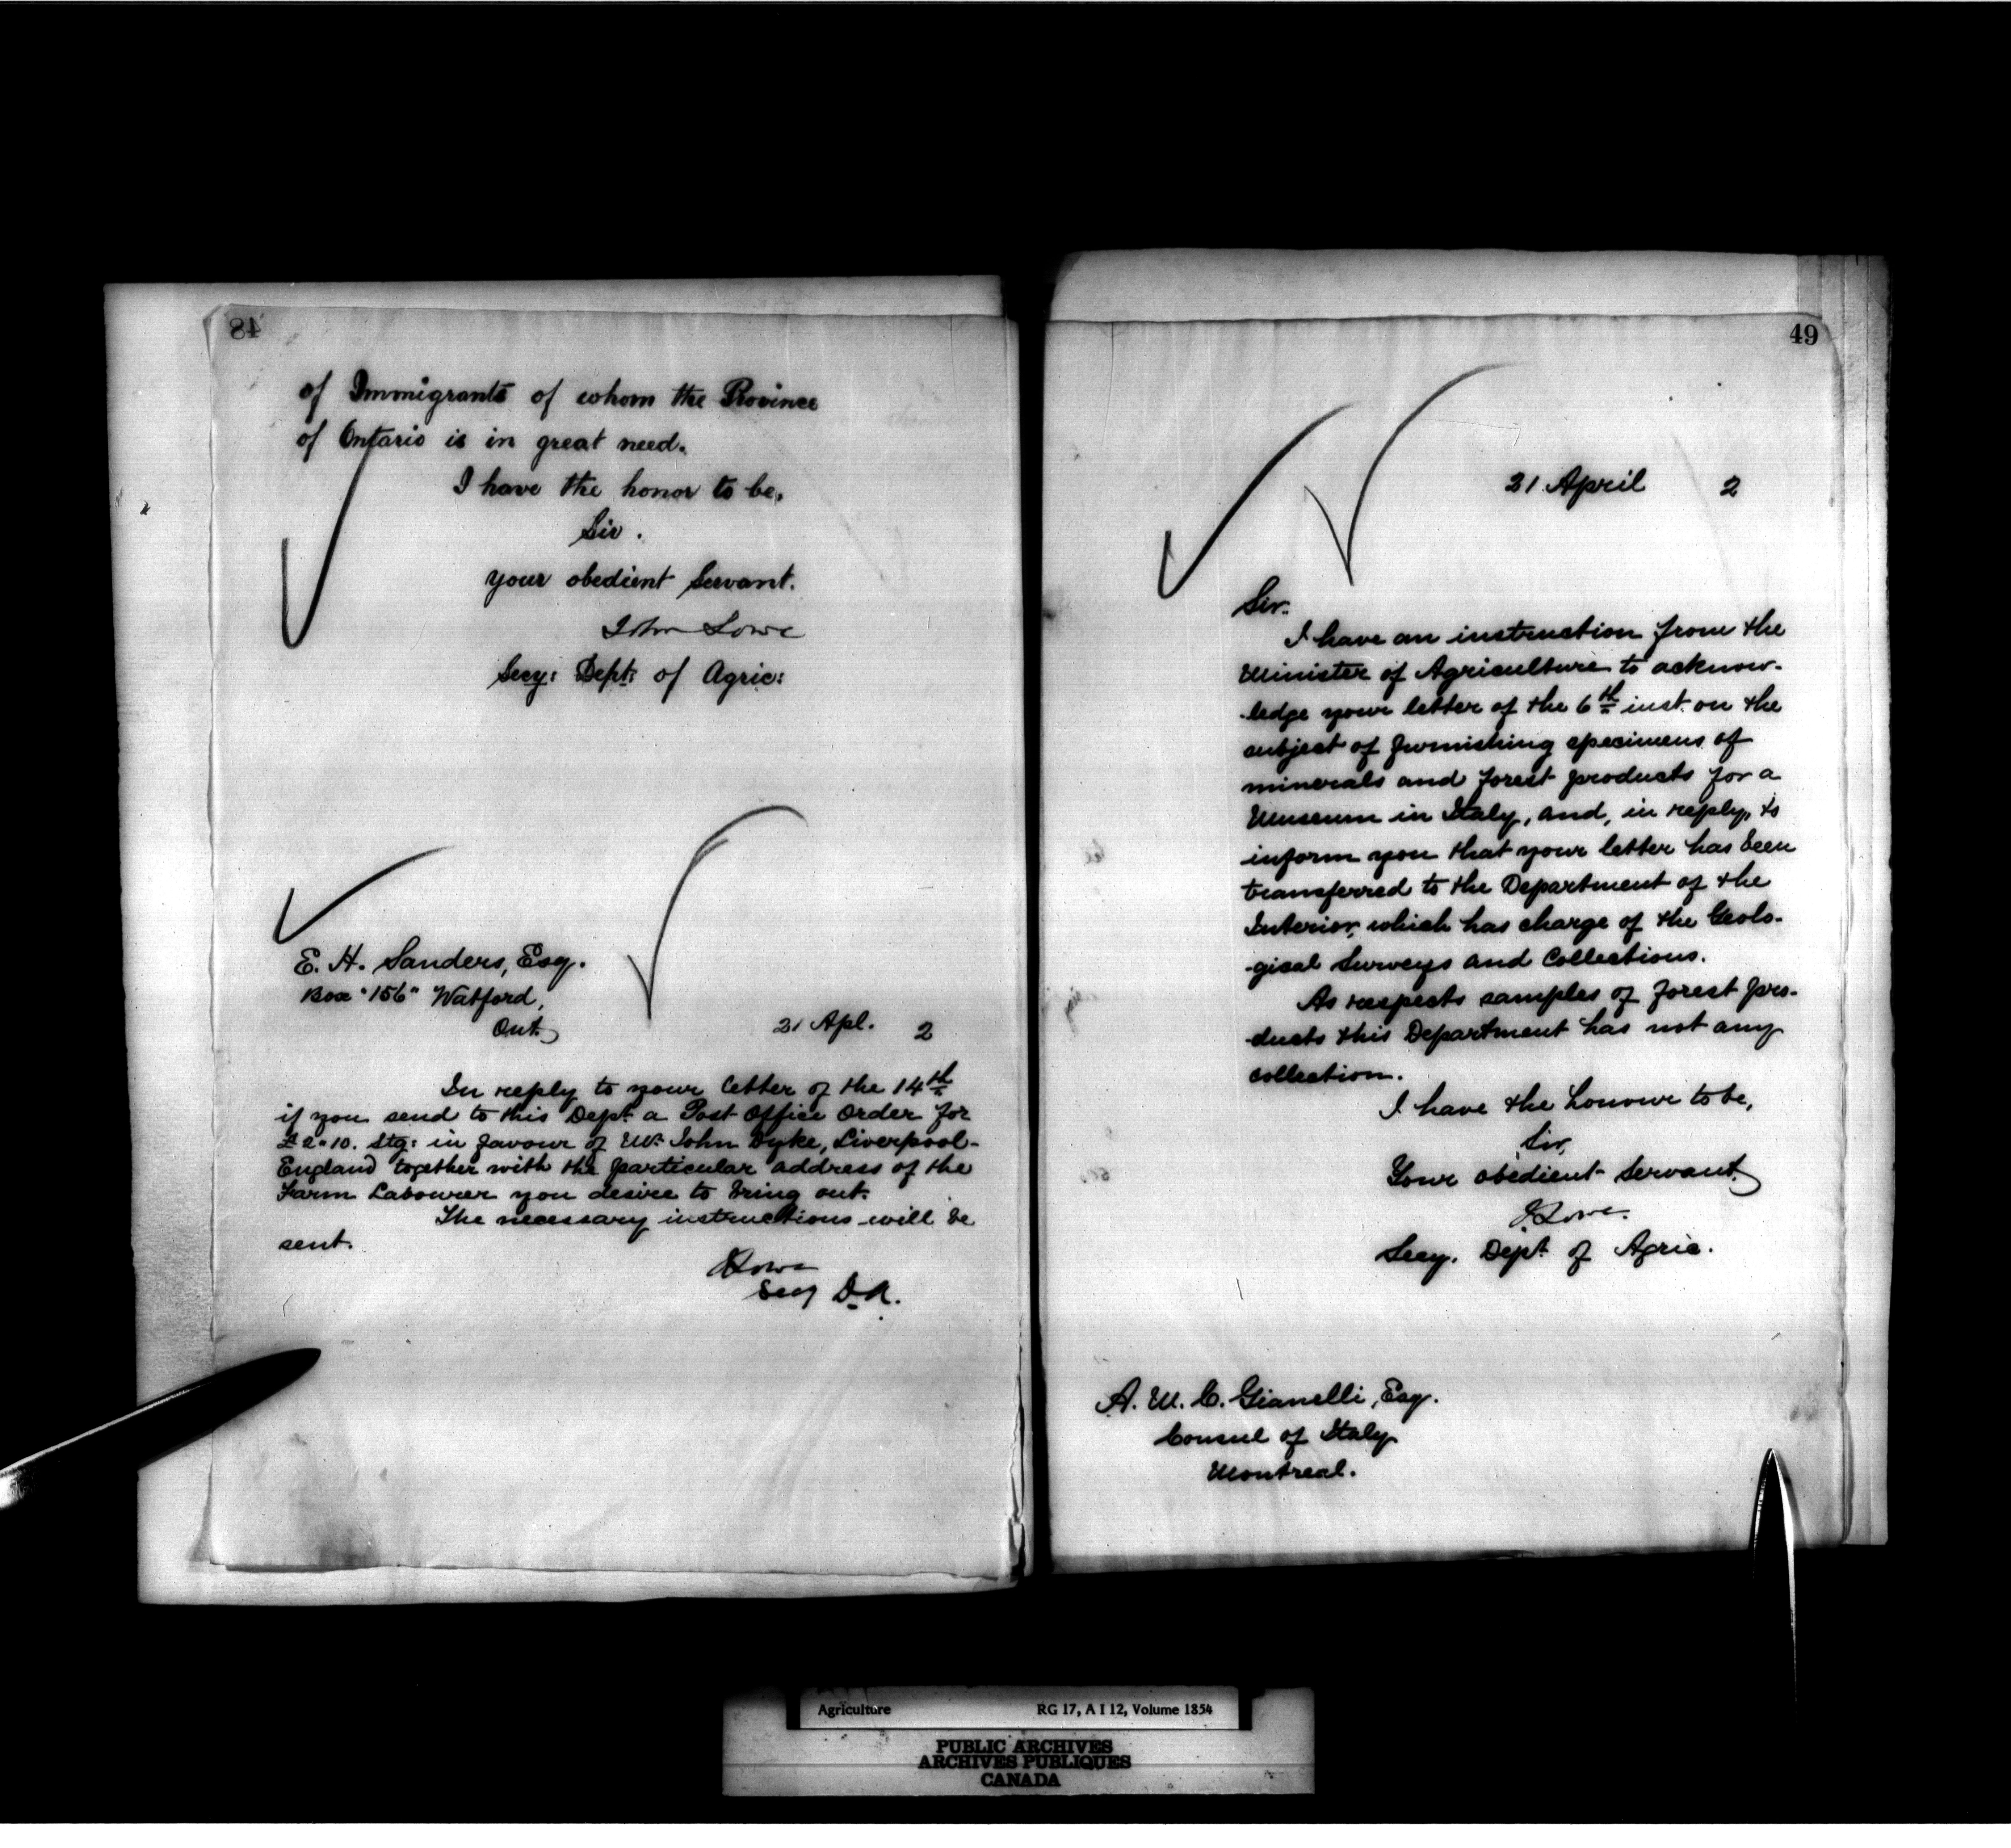 48
of Immigrants of whom the Province
of Ontario is in great need.
I have the honor to be,
Sir.
your obedient Servant.
John Lowe
Secy: Dept: of Agric:
E. H. Sanders, Esq.
Box "156" Watford,
Ont.
21 Apl. 2
In reply to your letter of the 14th
if you send to this Dept. a Post Office Order for
£2"10. Stg: in favour of Mr. John Dyke, Liverpool-
England together with the particular address of the
Farm Labourer you desire to bring out.
The necessary instructions will be
sent.
JLowe
Secy D.A.
49
21 April 2
Sir.
I have an instruction from the
Minister of Agriculture to acknow-
-ledge your letter of the 6th inst. on the
subject of furnishing specimens of
minerals and forest products for a
Museum in Italy, and, in reply, to
inform you that your letter has been
transferred to the Department of the
Interior, which has charge of the Geolo-
-gical Surveys and Collections.
As respects samples of forest pro-
-ducts this Department has not any
collection.
I have the honour to be,
Sir,
Your obedient Servant,
JLowe.
Secy. Dept. of Agric.
A. M. C. Gianelli, Esq.
Consul of Italy
Montreal.
Agriculture RG 17, A I 12, Volume 1854
PUBLIC ARCHIVES
ARCHIVES PUBLIQUES
CANADA